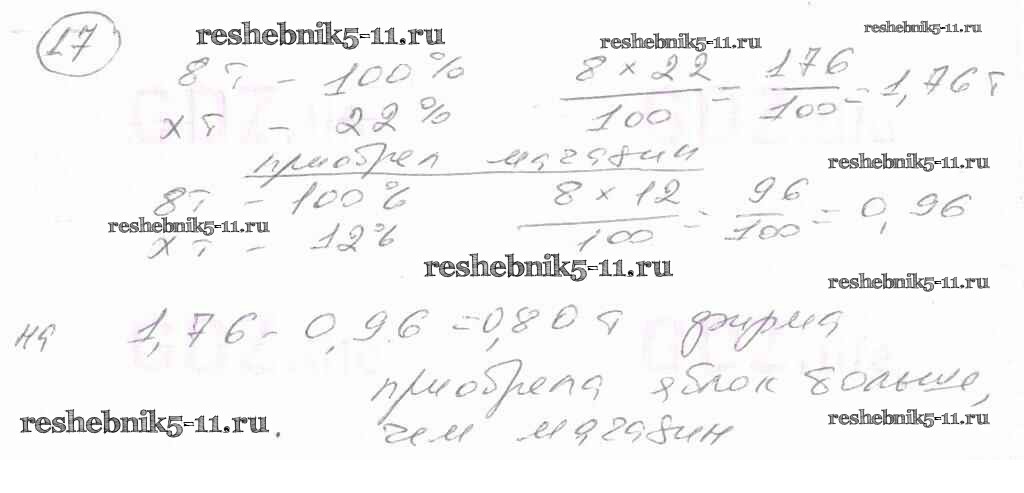 17
reshebnik5-11.ru reshebnik5-11.ru reshebnik5-11.ru
8т - 100% 8 × 22 / 100 = 176 / 100 = 1,76т
xт - 22%
приобрел магазин reshebnik5-11.ru
8т - 100% 8 × 12 / 100 = 96 / 100 = 0,96
reshebnik5-11.ru
xт - 12%
reshebnik5-11.ru reshebnik5-11.ru
на 1,76 - 0,96 = 0,80т фирма
приобрела яблок больше,
reshebnik5-11.ru. чем магазин reshebnik5-11.ru